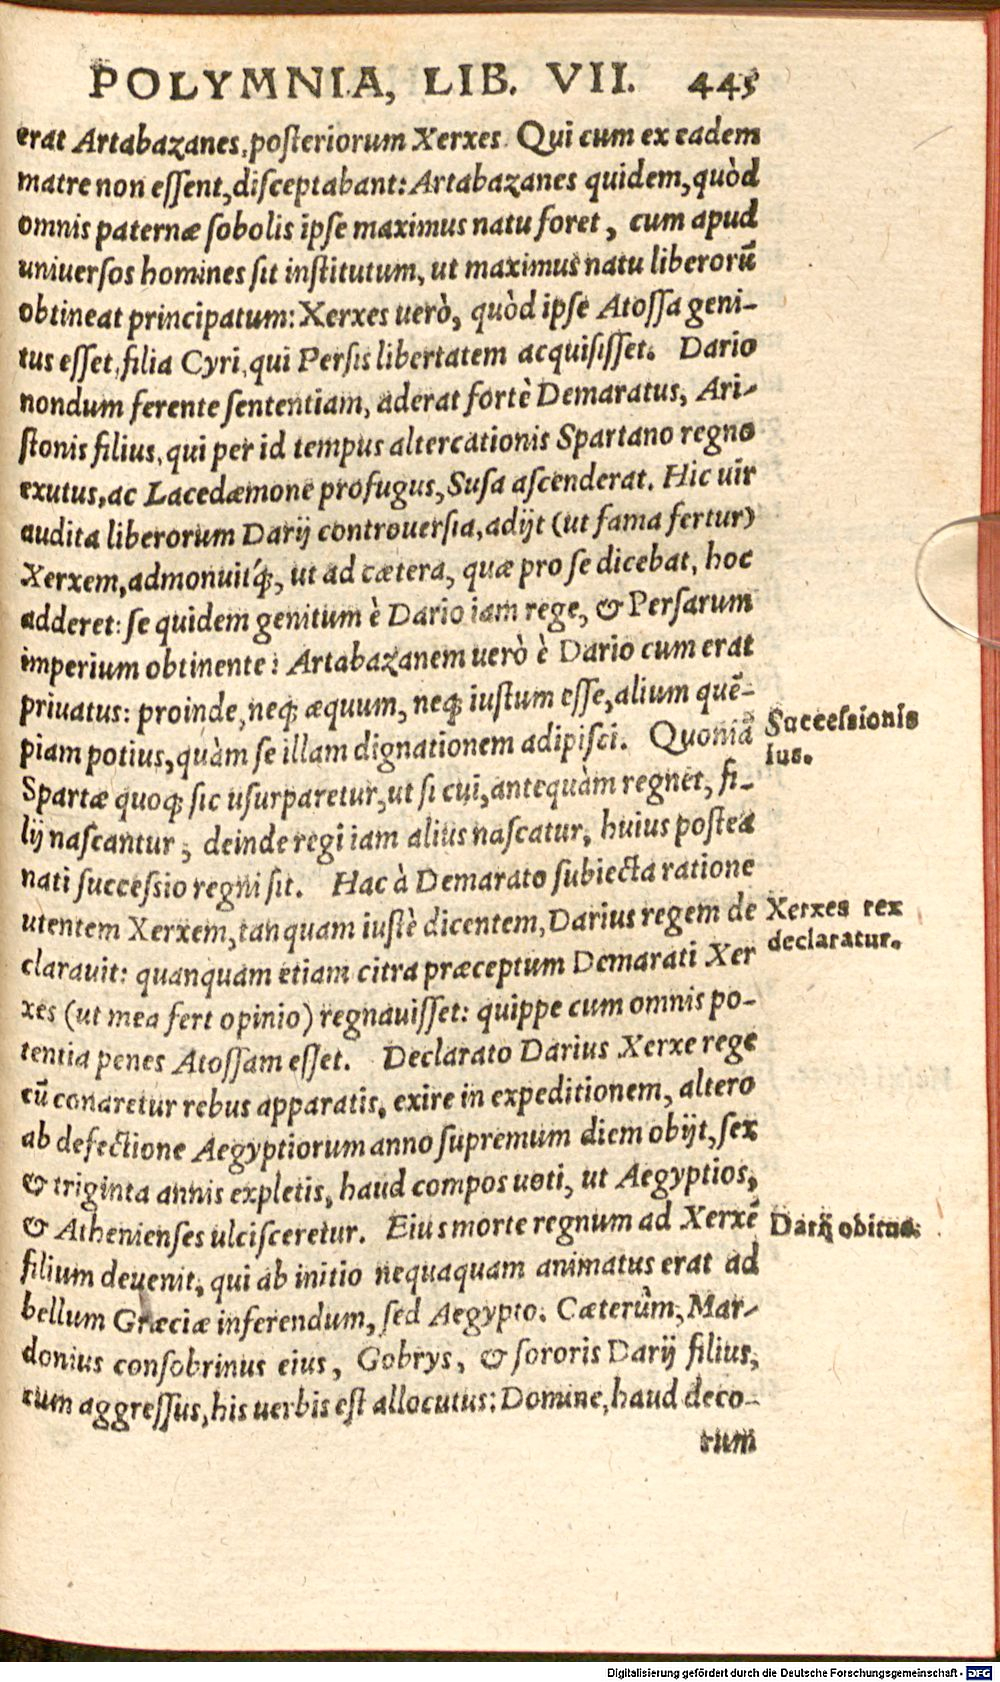 POLYMNIA, LIB. VII. 445
erat Artabazanes, poſteriorum Xerxes. Qui cum ex eadem
matre non eſſent, diſceptabant: Artabazanes quidem, quòd
omnis paternæ ſobolis ipſe maximus natu foret, cum apud
univerſos homines ſit inſtitutum, ut maximus natu liberorū
obtineat principatum: Xerxes uerò, quòd ipſe Atoſſa geni-
tus eſſet, filia Cyri, qui Perſis libertatem acquiſiſſet. Dario
nondum ferente ſententiam, aderat fortè Demaratus, Ari-
ſtonis filius, qui per id tempus altercationis Spartano regno
exutus, ac Lacedæmone profugus, Suſa aſcenderat. Hic uir
audita liberorum Darij controuerſia, adijt (ut fama fertur)
Xerxem, admonuitq́;, ut ad cætera, quæ pro ſe dicebat, hoc
adderet: ſe quidem genitum è Dario iam rege, & Perſarum
imperium obtinente: Artabazanem uerò è Dario cum erat
priuatus: proinde, neq; æquum, neq; iuſtum eſſe, alium quē-
piam potius, quàm ſe illam dignationem adipiſci. Quoniā
Succeſsionis
ius.
Spartæ quoq; ſic uſurparetur, ut ſi cui, antequàm regnet, fi-
lij naſcantur, deinde regi iam alius naſcatur, huius poſtea
nati ſucceſsio regni ſit. Hac à Demarato ſubiecta ratione
utentem Xerxem, tanquam iuſtè dicentem, Darius regem de
Xerxes rex
declaratur.
clarauit: quanquam etiam citra præceptum Demarati Xer
xes (ut mea fert opinio) regnauiſſet: quippe cum omnis po-
tentia penes Atoſſam eſſet. Declarato Darius Xerxe rege
cū conaretur rebus apparatis, exire in expeditionem, altero
ab defectione Aegyptiorum anno ſupremum diem obijt, ſex
& triginta annis expletis, haud compos uoti, ut Aegyptios,
& Athenienſes ulciſceretur. Eius morte regnum ad Xerxē
Darij obitus.
filium deuenit, qui ab initio nequaquam animatus erat ad
bellum Græciæ inferendum, ſed Aegypto. Cæterùm, Mar-
donius conſobrinus eius, Gobrys, & ſororis Darij filius,
eum aggreſſus, his uerbis eſt allocutus: Domine, haud deco-
rum
Digitalisierung gefördert durch die Deutsche Forschungsgemeinschaft - DFG